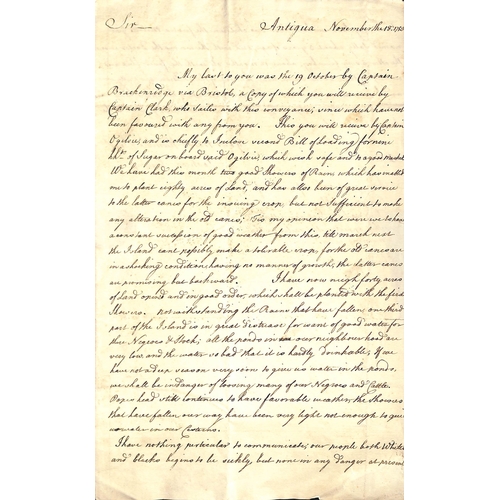 Sir Antigua November the 18: 
My last to you was the 19 October by Captain
Brackenridge via Bristol, a Copy of which you will recive by
Captain Clark, who sailes with this conveyance, since which have not
been favoured with any from you. This you will recive by Captain
Ogilvie, and is chiefly to Inclose second Bill of Loading for nine
hhds. of Sugar on board said Ogilvie, which wish safe and to a good Market
We have had this month two good Showers of Rain which has inabled
me to plant eighty acres of Land, and has allso been of great service
to the latter canes for the insuing crop, but not Sufficient to make
any altration in the old canes; Tis my opinion that were we to have
a constant succession of good weather from this, till march next
the Island cant possibly make a tolirable crop, for the old canes are
in a shocking condition having no manner of growth, the latter canes
are promising but backward. I have now neigh forty acres
of Land opened and in good order, which shall be planted with the first
Showers. notwithstanding the Rains that have fallen, one third
part of the Island is in great distress for want of good water for
thire Negroes & Stock; all the ponds in our neighbourhood are
very low and the water so bad that it is hardly drinkable, If we
have not a dep season very soon to give us water in the ponds,
we shall be in danger of looseing many of our Negroes and Cattle
Popes head still continues to have favorable weather, the Showers
that have fallen our way have been very light not enough to give
us water in our Cisterns.
I have nothing perticular to communicate, our people both Whites
and blacks begins to be sickly, but none in any danger at present